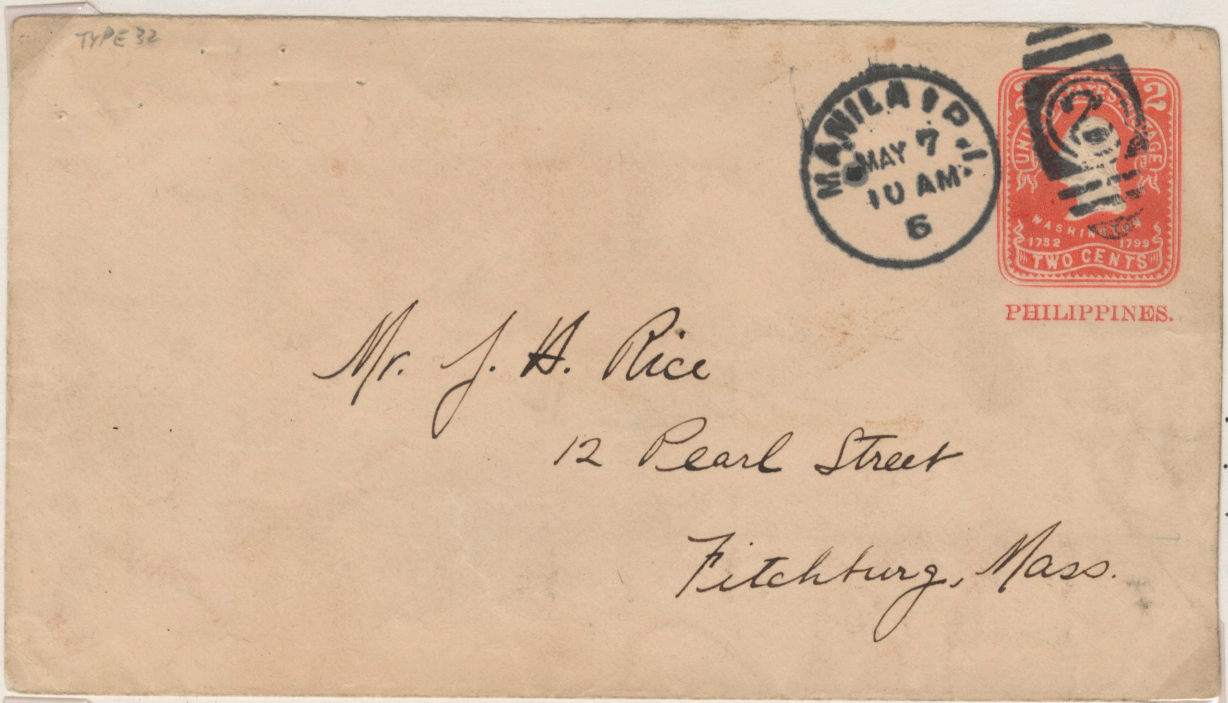 TYPE 32
MANILA, P.I.
MAY 7
10 AM
6
2 UNITED STATES POSTAGE 2
2
WASHINGTON
1732 1799
TWO CENTS
PHILIPPINES.
Mr. J. H. Rice
12 Pearl Street
Fitchburg, Mass.